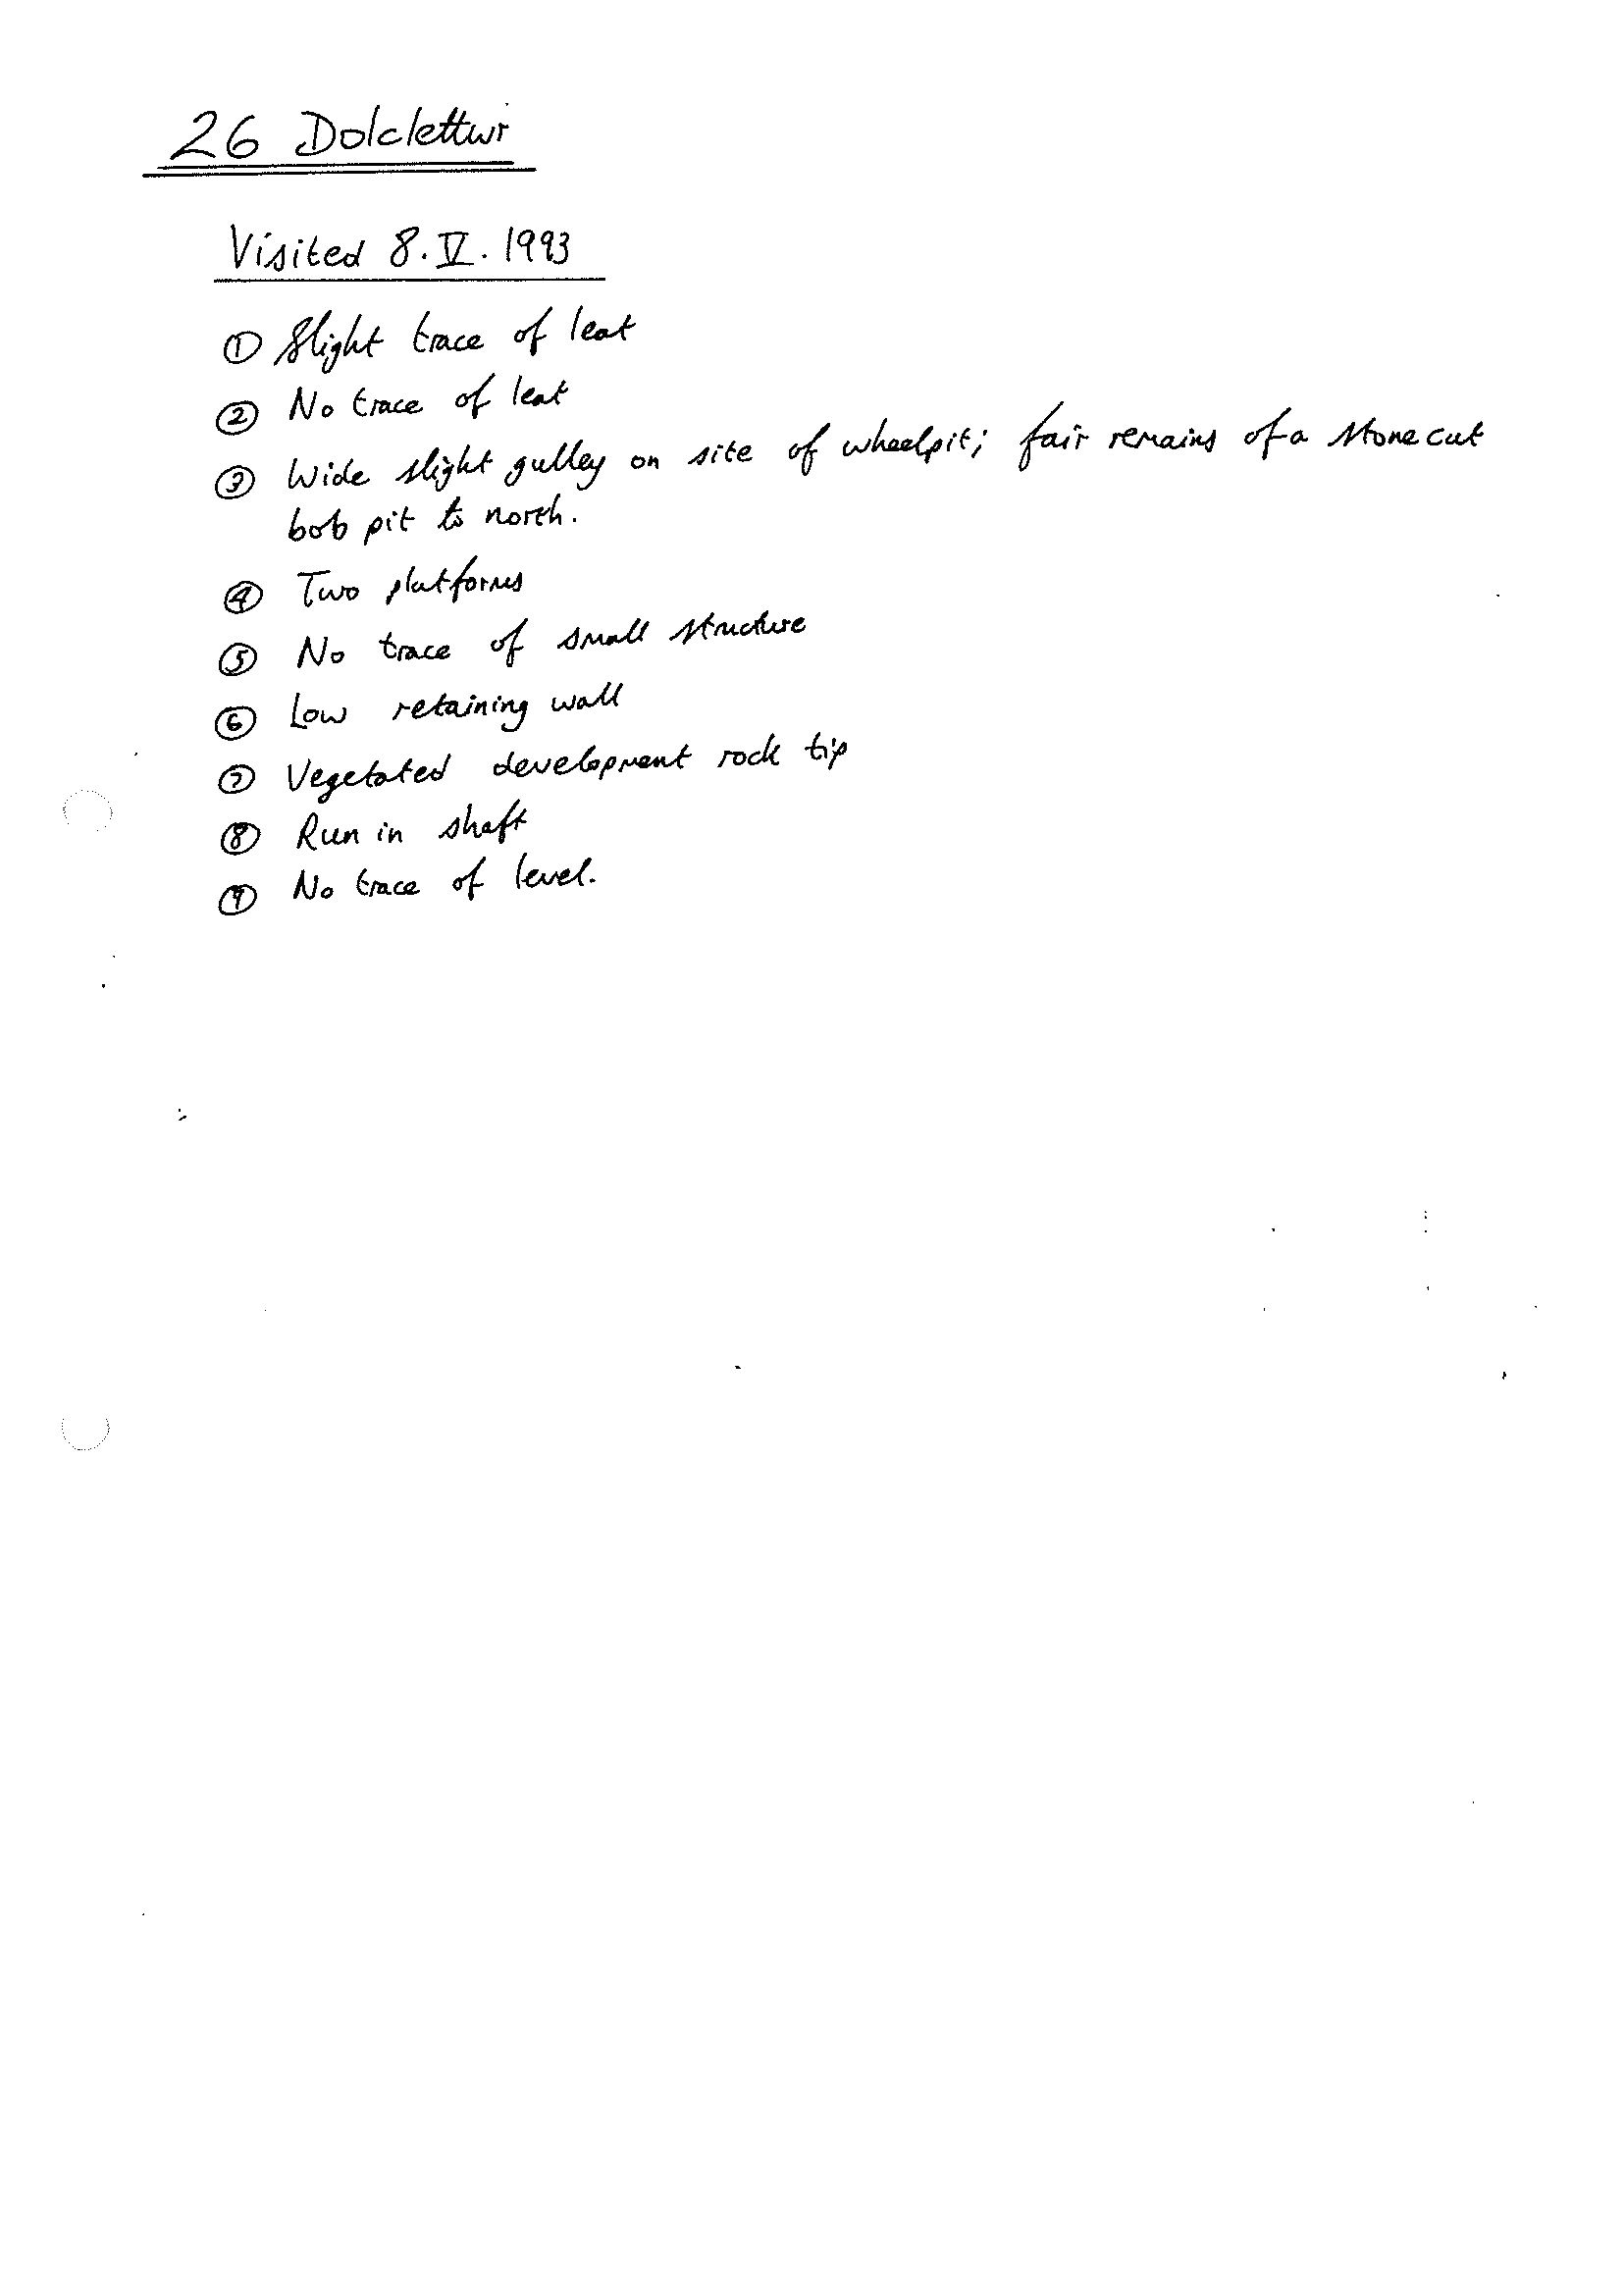 26 Dolclettwr
Visited 8.V.1993
① Slight trace of leat
② No trace of leat
③ Wide slight gulley on site of wheelpit; fair remains of a stone cut
bob pit to north.
④ Two platforms
⑤ No trace of small structure
⑥ Low retaining wall
⑦ Vegetated development rock tip
⑧ Run in shaft
⑨ No trace of level.